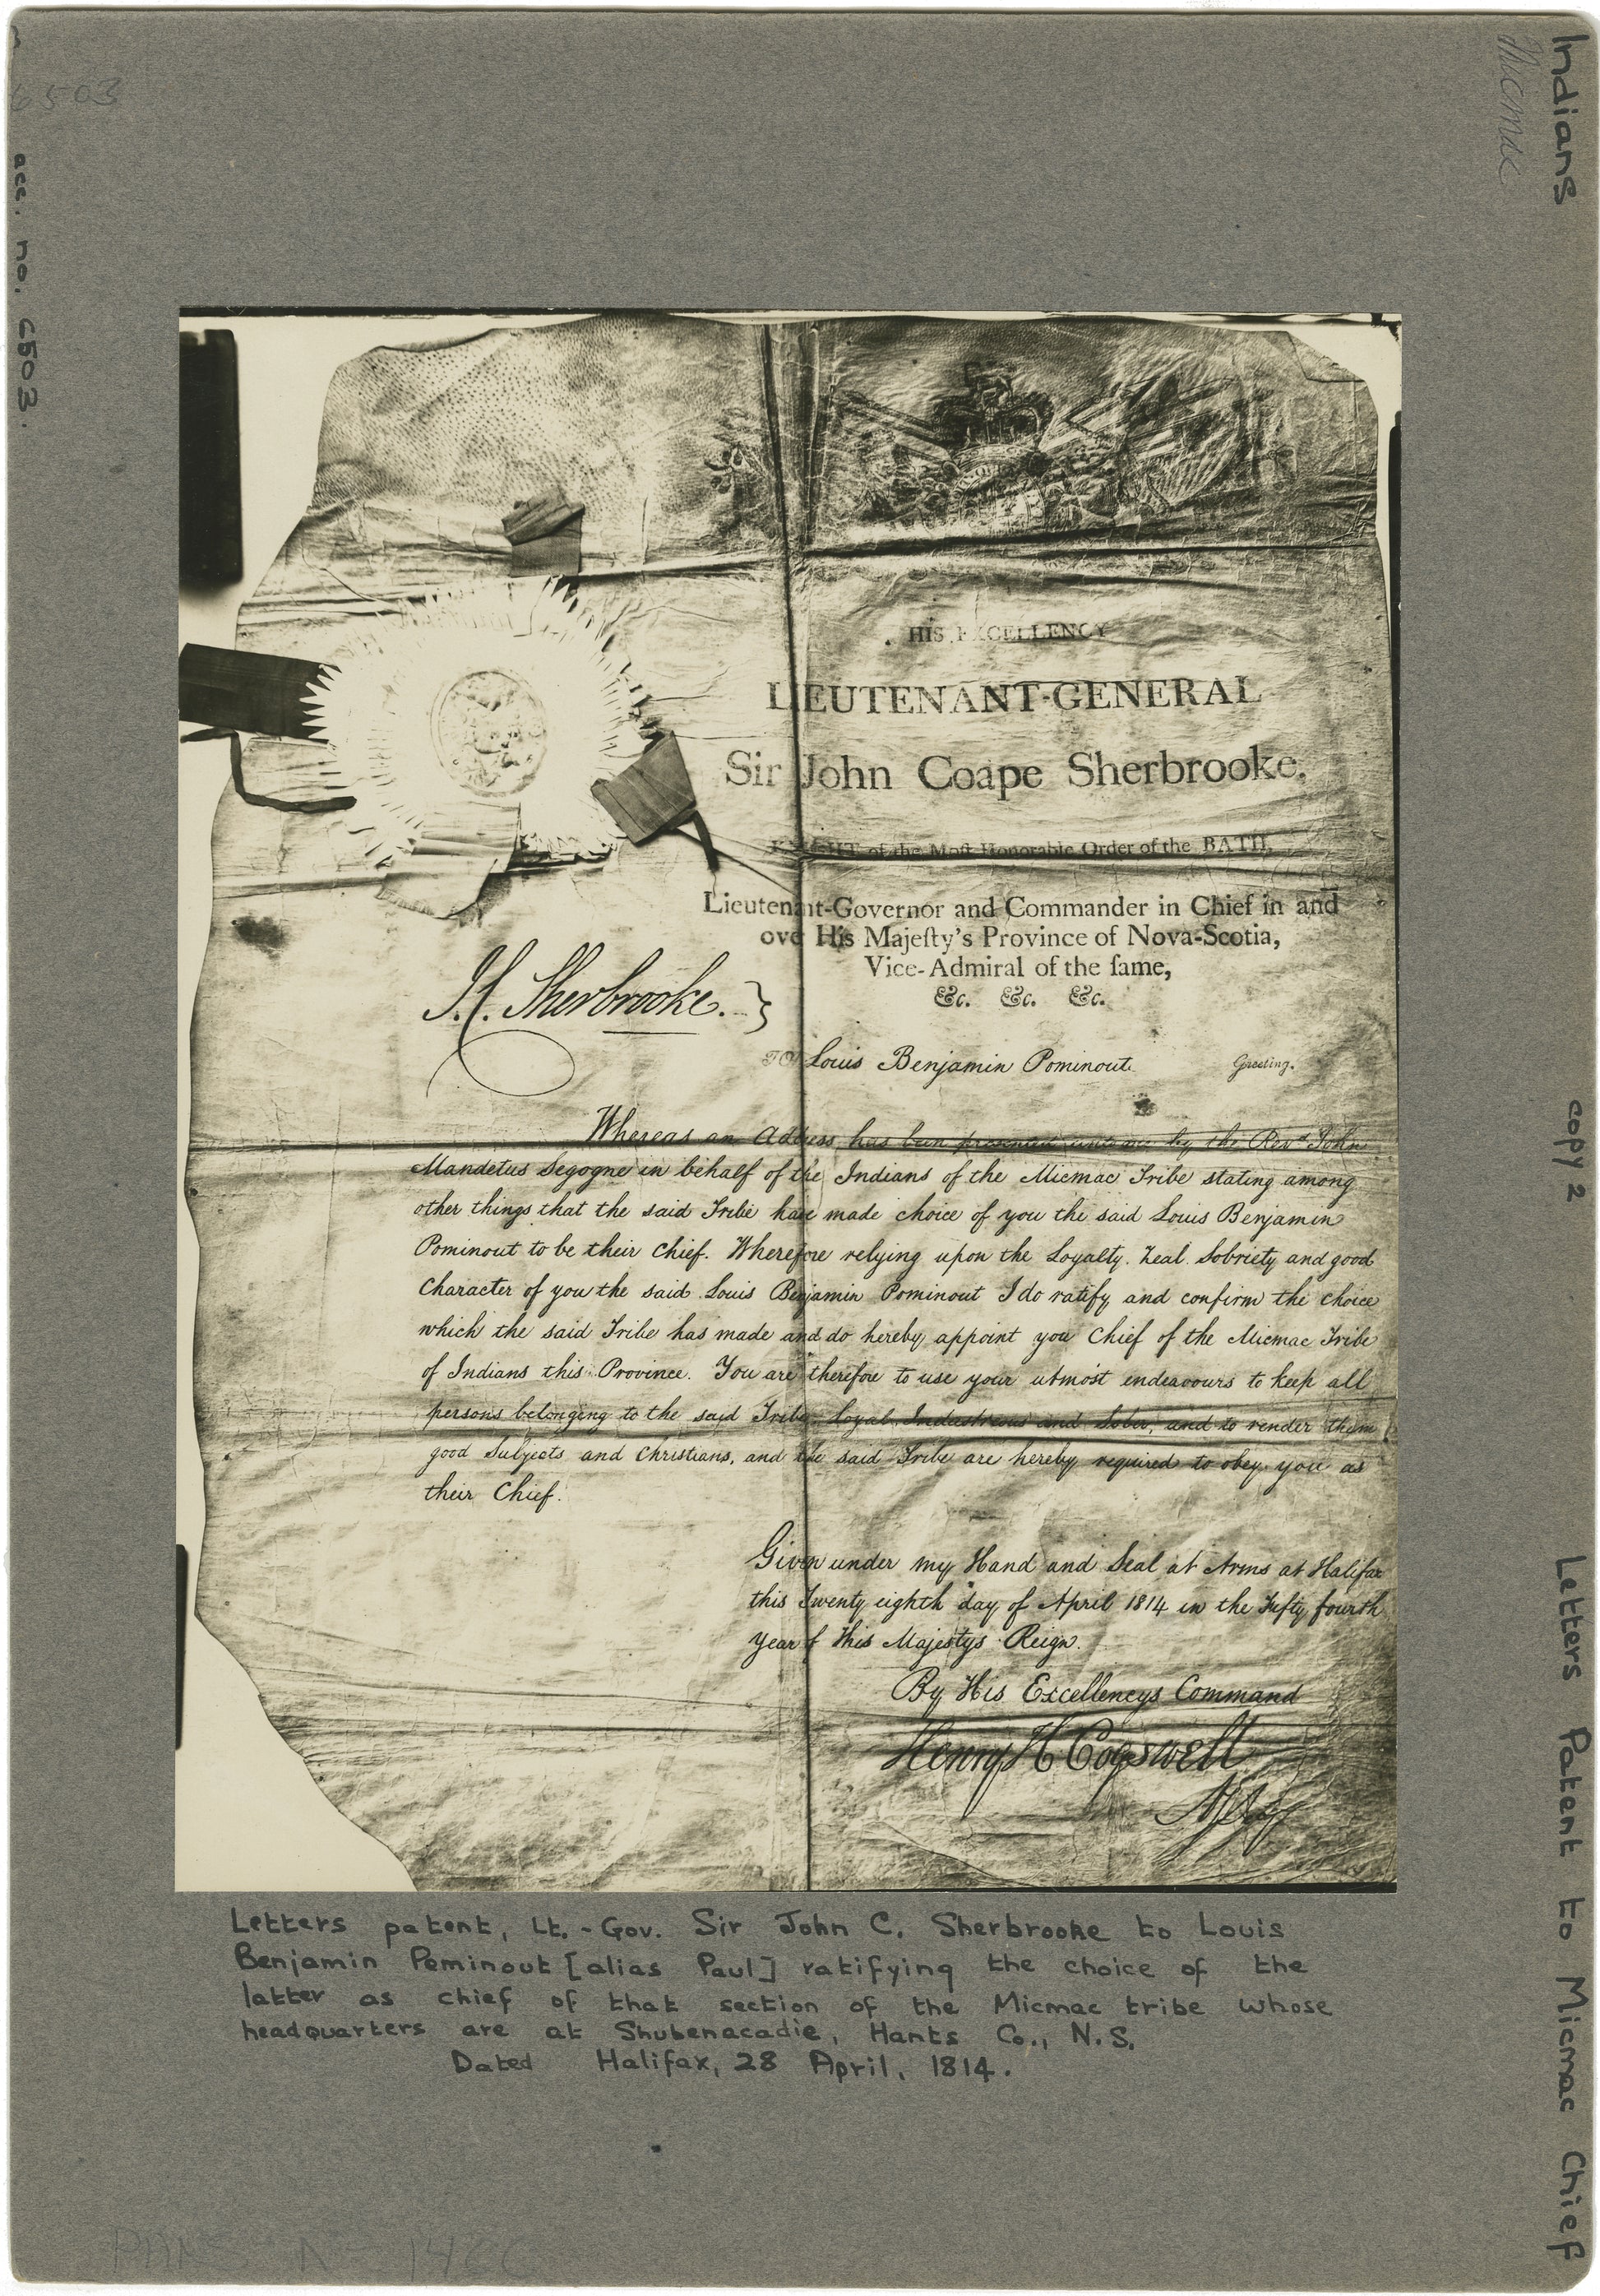 Indians
Micmac
6503
acc. no. 6503.
HIS EXCELLENCY
LIEUTENANT-GENERAL
Sir John Coape Sherbrooke,
KNIGHT of the Moſt Honorable Order of the BATH,
Lieutenant-Governor and Commander in Chief in and
over His Majeſty's Province of Nova-Scotia,
Vice-Admiral of the ſame,
&c. &c. &c.
J. C. Sherbrooke.
TO Louis Benjamin Pominout Greeting.
Whereas an Address has been presented unto me by the Revd John
Mandetus Segogne in behalf of the Indians of the Micmac Tribe stating among
other things that the said Tribe have made choice of you the said Louis Benjamin
Pominout to be their Chief. Wherefore relying upon the Loyalty. Zeal. Sobriety and good
Character of you the said Louis Benjamin Pominout I do ratify and confirm the choice
which the said Tribe has made and do hereby appoint you Chief of the Micmac Tribe
of Indians this Province. You are therefore to use your utmost endeavours to keep all
persons belonging to the said Tribe Loyal Industrious and Sober, and to render them
good Subjects and Christians, and the said Tribe are hereby required to obey you as
their Chief.
Given under my Hand and Seal at Arms at Halifax
this Twenty eighth day of April 1814 in the Fifty fourth
Year of His Majestys Reign.
By His Excellencys Command
Henry H Cogswell
copy 2
Letters Patent to Micmac Chief
Letters patent, Lt.-Gov. Sir John C. Sherbrooke to Louis
Benjamin Peminout [alias Paul] ratifying the choice of the
latter as chief of that section of the Micmac tribe whose
headquarters are at Shubenacadie, Hants Co., N.S.
Dated Halifax, 28 April, 1814.